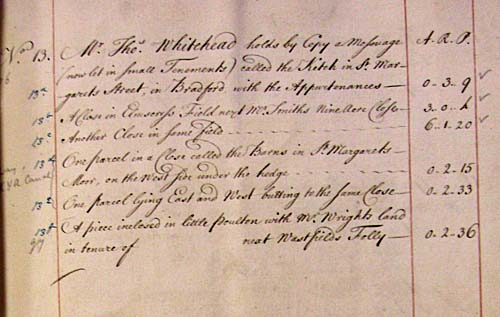 No. 13. Mr. Thos. Whitehead holds by Copy a Messuage A. R. P.
(now let in small Tenements) called the Kitch in St. Mar-
garets Street, in Bradford with the Appurtenances — 0. 3. 9
13a
A Close in Elmscross Field next Mr. Smiths Nine Acre Close 3. 0. 4
13b
Another Close in same Field 6. 1. 20
13c
One parcel in a Close called the Barns in St. Margarets
13d
Moor, on the West side under the hedge 0. 2. 15
One parcel lying East and West butting to the same Close 0. 2. 33
13e
A piece inclosed in little Poulton with Mr. Wrights land
13f
in tenure of next Westfields Folly — 0. 2. 36